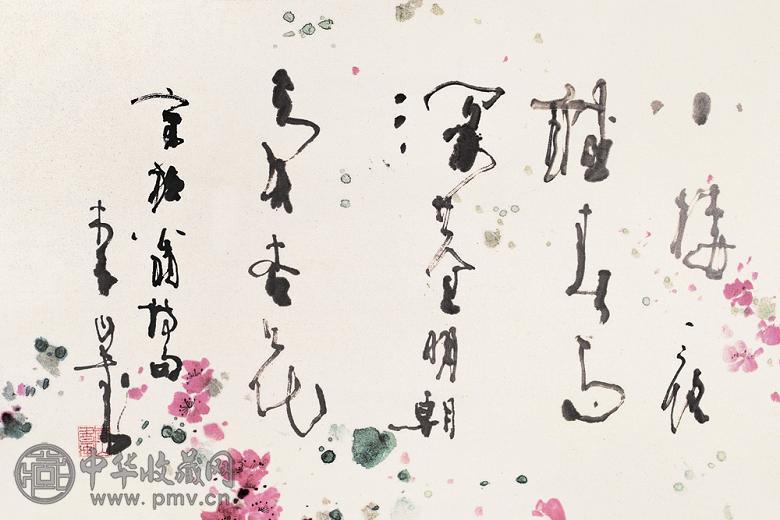 小樓一夜
聽春雨
深巷明朝
賣杏花
宋放翁詩句
中华收藏网
www.pmv.cn